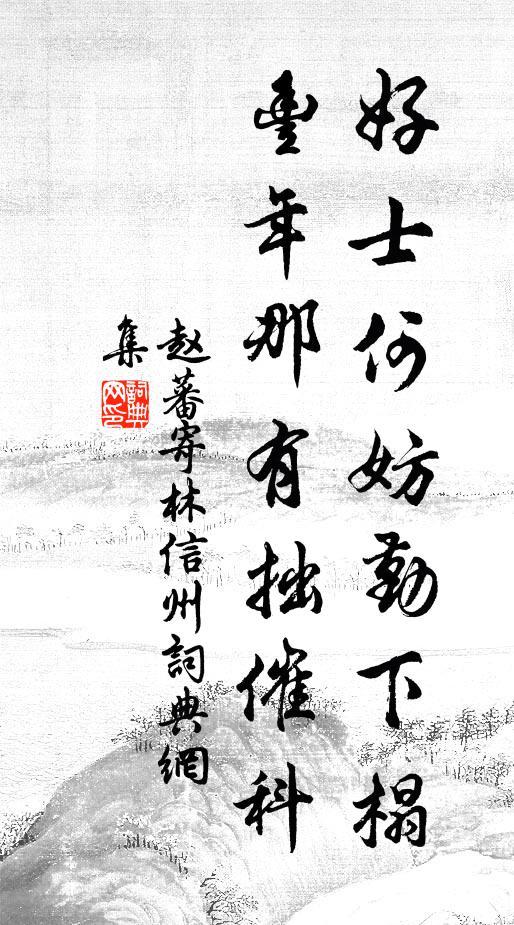 好士何妨勤下榻
豐年那有拙催科
赵蕃寄林信州詞典網
集
詞典网印